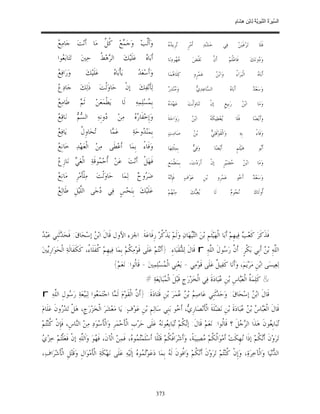 السِّيرَةُ النَّبَوِيَّةُ لِابْنِ هِشَامٍ
فَلَا تَرْغَبَنْ فِي حَشْدِ أَمْرٍ تُرِيدُهُ وَأَلِّبْ وَجَمِّعْ كُلَّ مَا أَنْتَ جَامِعُ
وَدُونَكَ فَاعْلَمْ أَنَّ نَقْضَ عُهُودِنَا أَبَاهُ عَلَيْكَ الرَّهْطُ حِينَ تَتَابَعُوا
أَبَاهُ الْبَرَاءُ وَابْنُ عَمْرٍو كِلَاهُمَا وَأَسْعَدُ يَأْبَاهُ عَلَيْكَ وَرَافِعُ
وَسَعْدٌ أَبَاهُ السَّاعِدِيُّ وَمُنْذِرٌ لِأَنْفِكَ إنْ حَاوَلْتَ ذَلِكَ جَادِعُ
وَمَا ابْنُ رَبِيعٍ إنْ تَنَاوَلْتَ عَهْدَهُ بِمُسْلِمِهِ لَا يَطْمَعَنْ ثَمَّ طَامِعُ
وَأَيْضًا فَلَا يُعْطِيكَهُ ابْنُ رَوَاحَةَ وَإِخْفَارُهُ مِنْ دُونِهِ السُّمُّ نَاقِعُ
وَفَاءً بِهِ وَالْقَوْقَلِيُّ بْنُ صَامِتٍ بِمَنْدُوحَةٍ عَمَّا تُحَاوِلُ يَافِعُ
أَبُو هَيْثَمٍ أَيْضًا وَفِيٌّ بِمِثْلِهَا وَفَاءً بِمَا أَعْطَى مِنْ الْعَهْدِ خَانِعُ
وَمَا ابْنُ حُضَيْرٍ إنْ أَرَدْتَ بِمَطْمَعٍ فَهَلْ أَنْتَ عَنْ أُحْمُوقَةِ الْغَيِّ نَازِعُ
وَسَعْدٌ أَخُو عَمْرِو بْنِ عَوْفٍ فَإِنَّهُ ضَرُوحٌ لِمَا حَاوَلْتَ مِلْأَمْرِ مَانِعُ
أُولَاكَ نُجُومٌ لَا يُغِبُّكَ مِنْهُمْ عَلَيْكَ بِنَحْسٍ فِي دُجَى اللَّيْلِ طَالِعُ
فَذَكَرَ كَعْبٌ فِيهِمْ أَبَا الْهَيْثَمِ بْنَ التَّيِّهَانِ وَلَمْ يَذْكُرْ رِفَاعَةَ الجزء الأول قَالَ ابْنُ إسْحَاقَ فَحَدَّثَنِي عَبْدُ
اللَّهِ بْنُ أَبِي بَكْرٍ أَنَّ رَسُولَ اللَّهِ قَالَ لِلنُّقَبَاءِ {أَنْتُمْ عَلَى قَوْمِكُمْ بِمَا فِيهِمْ كُفَلَاءُ، كَكَفَالَةِ الْحَوَارِيِّينَ
لِعِيسَى ابْنِ مَرْيَمَ، وَأَنَا كَفِيلٌ عَلَى قَوْمِي - يَعْنِي الْمُسْلِمِينَ - قَالُوا نَعَمْ}
# كَلِمَةُ الْعَبَّاسِ بْنِ عُبَادَةَ فِي الْخَزْرَجِ قَبْلَ الْمُبَايَعَةِ #
قَالَ ابْنُ إسْحَاقَ وَحَدَّثَنِي عَاصِمُ بْنُ عُمَرَ بْنِ قَتَادَةَ {أَنَّ الْقَوْمَ لَمَّا اجْتَمَعُوا لِبَيْعَةِ رَسُولِ اللَّهِ
قَالَ الْعَبَّاسُ بْنُ عُبَادَةَ بْنِ نَضْلَةَ الْأَنْصَارِيُّ، أَخُو بَنِي سَالِمِ بْنِ عَوْفٍ يَا مَعْشَرَ الْخَزْرَجِ، هَلْ تَدْرُونَ عَلَامَ
تُبَايِعُونَ هَذَا الرَّجُلَ ؟ قَالُوا نَعَمْ قَالَ إنَّكُمْ تُبَايِعُونَهُ عَلَى حَرْبِ الْأَحْمَرِ وَالْأَسْوَدِ مِنْ النَّاسِ، فَإِنْ كُنْتُمْ
تَرَوْنَ أَنَّكُمْ إذَا نُهِكَتْ أَمْوَالُكُمْ مُصِيبَةً، وَأَشْرَافُكُمْ قَتْلًا أَسْلَمْتُمُوهُ، فَمِنْ الْآنَ، فَهُوَ وَاَللَّهِ إنْ فَعَلْتُمْ خِزْيُ
الدُّنْيَا وَالْآخِرَةِ، وَإِنْ كُنْتُمْ تَرَوْنَ أَنَّكُمْ وَافُونَ لَهُ بِمَا دَعَوْتُمُوهُ إلَيْهِ عَلَى نَهْكَةِ الْأَمْوَالِ وَقَتْلِ الْأَشْرَافِ،
373